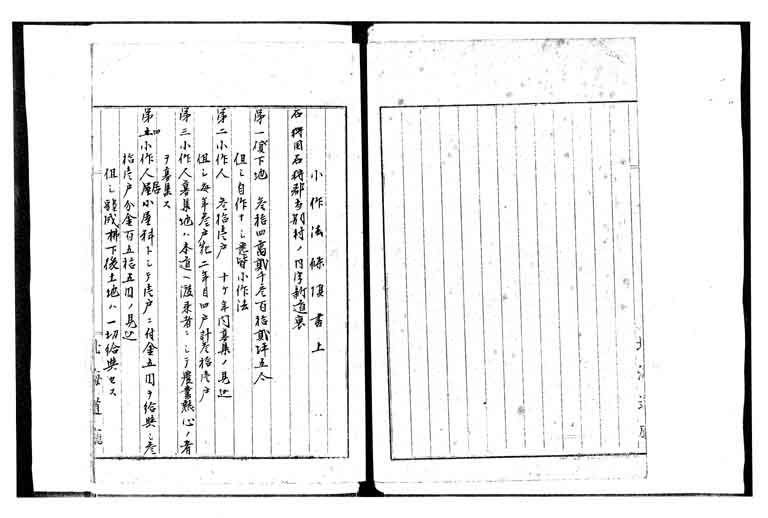 小作法條項書上
石狩国石狩郡当別村ノ内字新道裏
第一貸下地 叁拾四萬貳千叁百拾貳坪五合
但シ自作ナシ悉皆小作法
第二小作人 叁拾壱戸 十ケ年間募集ノ見込
但シ毎年叁戸宛二年目四戸計叁拾壱戸
第三小作人募集地ハ本道ヘ渡来者ニシテ農業熱心ノ者
ヲ募集ス
第四小作人居小屋料トシテ壱戸ニ付金五円ヲ給与シ叁
拾壱戸分金百五拾五円ノ見込
但シ成功払下後土地ハ一切給與セス
北海道庁
北海道庁